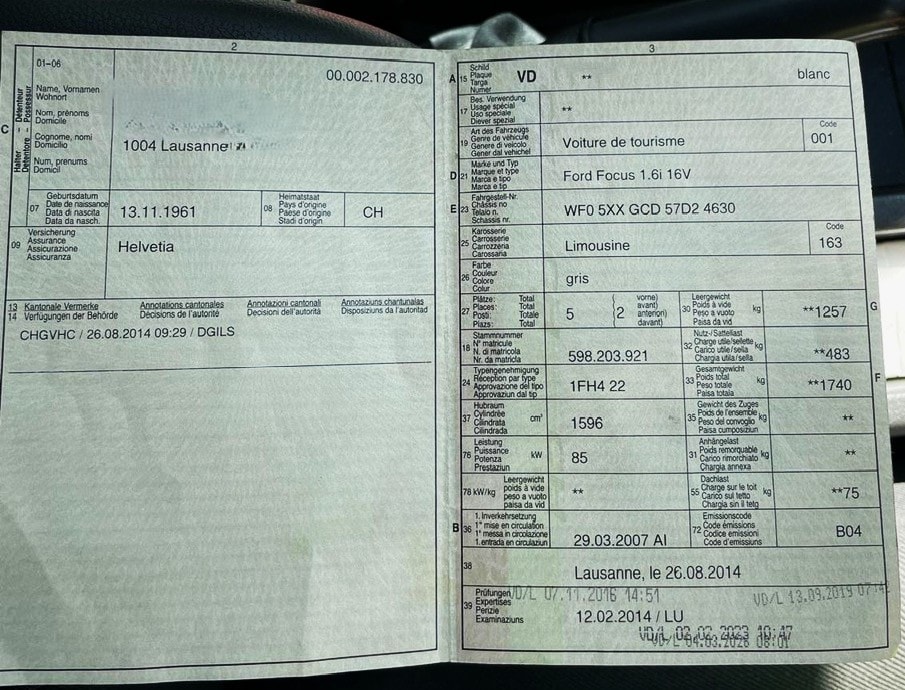 2
01-06
00.002.178.830
C
Halter Détenteur
Detentore Possessur
Name, Vornamen
Wohnort
Nom, prénoms
Domicile
Cognome, nomi
Domicilio
Num, prenums
Domicil
1004 Lausanne
07
Geburtsdatum
Date de naissance
Data di nascita
Data da nasch.
13.11.1961
08
Heimatstaat
Pays d'origine
Paese d'origine
Stadi d'origin
CH
09
Versicherung
Assurance
Assicurazione
Assicuranza
Helvetia
13 Kantonale Vermerke Annotations cantonales Annotazioni cantonali Annotaziuns chantunalas
14 Verfügungen der Behörde Décisions de l'autorité Decisioni dell'autorità Disposiziuns da l'autoritad
CHGVHC / 26.08.2014 09:29 / DGILS
3
A 15
Schild
Plaque
Targa
Numer
VD ** blanc
17
Bes. Verwendung
Usage spécial
Uso speciale
Diever spezial
**
19
Art des Fahrzeugs
Genre de véhicule
Genere di veicolo
Gener dal vehichel
Voiture de tourisme
Code
001
D 21
Marke und Typ
Marque et type
Marca e tipo
Marca e tip
Ford Focus 1.6i 16V
E 23
Fahrgestell-Nr.
Châssis no
Telaio n.
Schassis nr.
WF0 5XX GCD 57D2 4630
25
Karosserie
Carrosserie
Carrozzeria
Carossaria
Limousine
Code
163
26
Farbe
Couleur
Colore
Colur
gris
27
Plätze: Total
Places: Total
Posti: Totale
Plazs: Total
5
2
vorne)
avant)
anteriori)
davant)
30
Leergewicht
Poids à vide
Peso a vuoto
Paisa da vid
kg
**1257
G
18
Stammnummer
N° matricule
N. di matricola
Nr. da matricla
598.203.921
32
Nutz-/Sattellast
Charge utile/sellette
Carico utile/sella
Chargia utila/sella
kg
**483
24
Typengenehmigung
Réception par type
Approvazione del tipo
Approvaziun dal tip
1FH4 22
33
Gesamtgewicht
Poids total
Peso totale
Paisa totala
kg
**1740
F
37
Hubraum
Cylindrée
Cilindrata
Cilindrada
cm³
1596
35
Gewicht des Zuges
Poids de l'ensemble
Peso del convoglio
Paisa cumposiziun
kg
**
76
Leistung
Puissance
Potenza
Prestaziun
kW
85
31
Anhängelast
Poids remorquable
Carico rimorchiato
Chargia annexa
kg
**
78 kW/kg
Leergewicht
poids à vide
peso a vuoto
paisa da vid
**
55
Dachlast
Charge sur le toit
Carico sul tetto
Chargia sin il tetg
kg
**75
B 36
1. Inverkehrsetzung
1re mise en circulation
1a messa in circolazione
1. entrada en circulaziun
29.03.2007 AI
72
Emissionscode
Code émissions
Codice emissioni
Code d'emissiuns
B04
38
Lausanne, le 26.08.2014
39
Prüfungen
Expertises
Perizie
Examinaziuns
VD/L 07.11.2016 14:51
VD/L 13.09.2019
12.02.2014 / LU
VD/L 02.02.2023 10:47
VD/L 04.03.2026 08:01